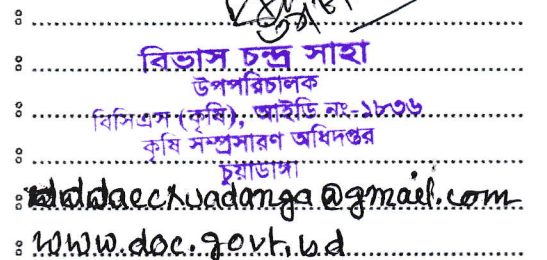 বিভাস চন্দ্র সাহা
উপপরিচালক
বিসিএস (কৃষি), আইডি নং-১৮৩৬
কৃষি সম্প্রসারণ অধিদপ্তর
চুয়াডাঙ্গা
dddaechuadanga@gmail.com
www.doc.govt.bd